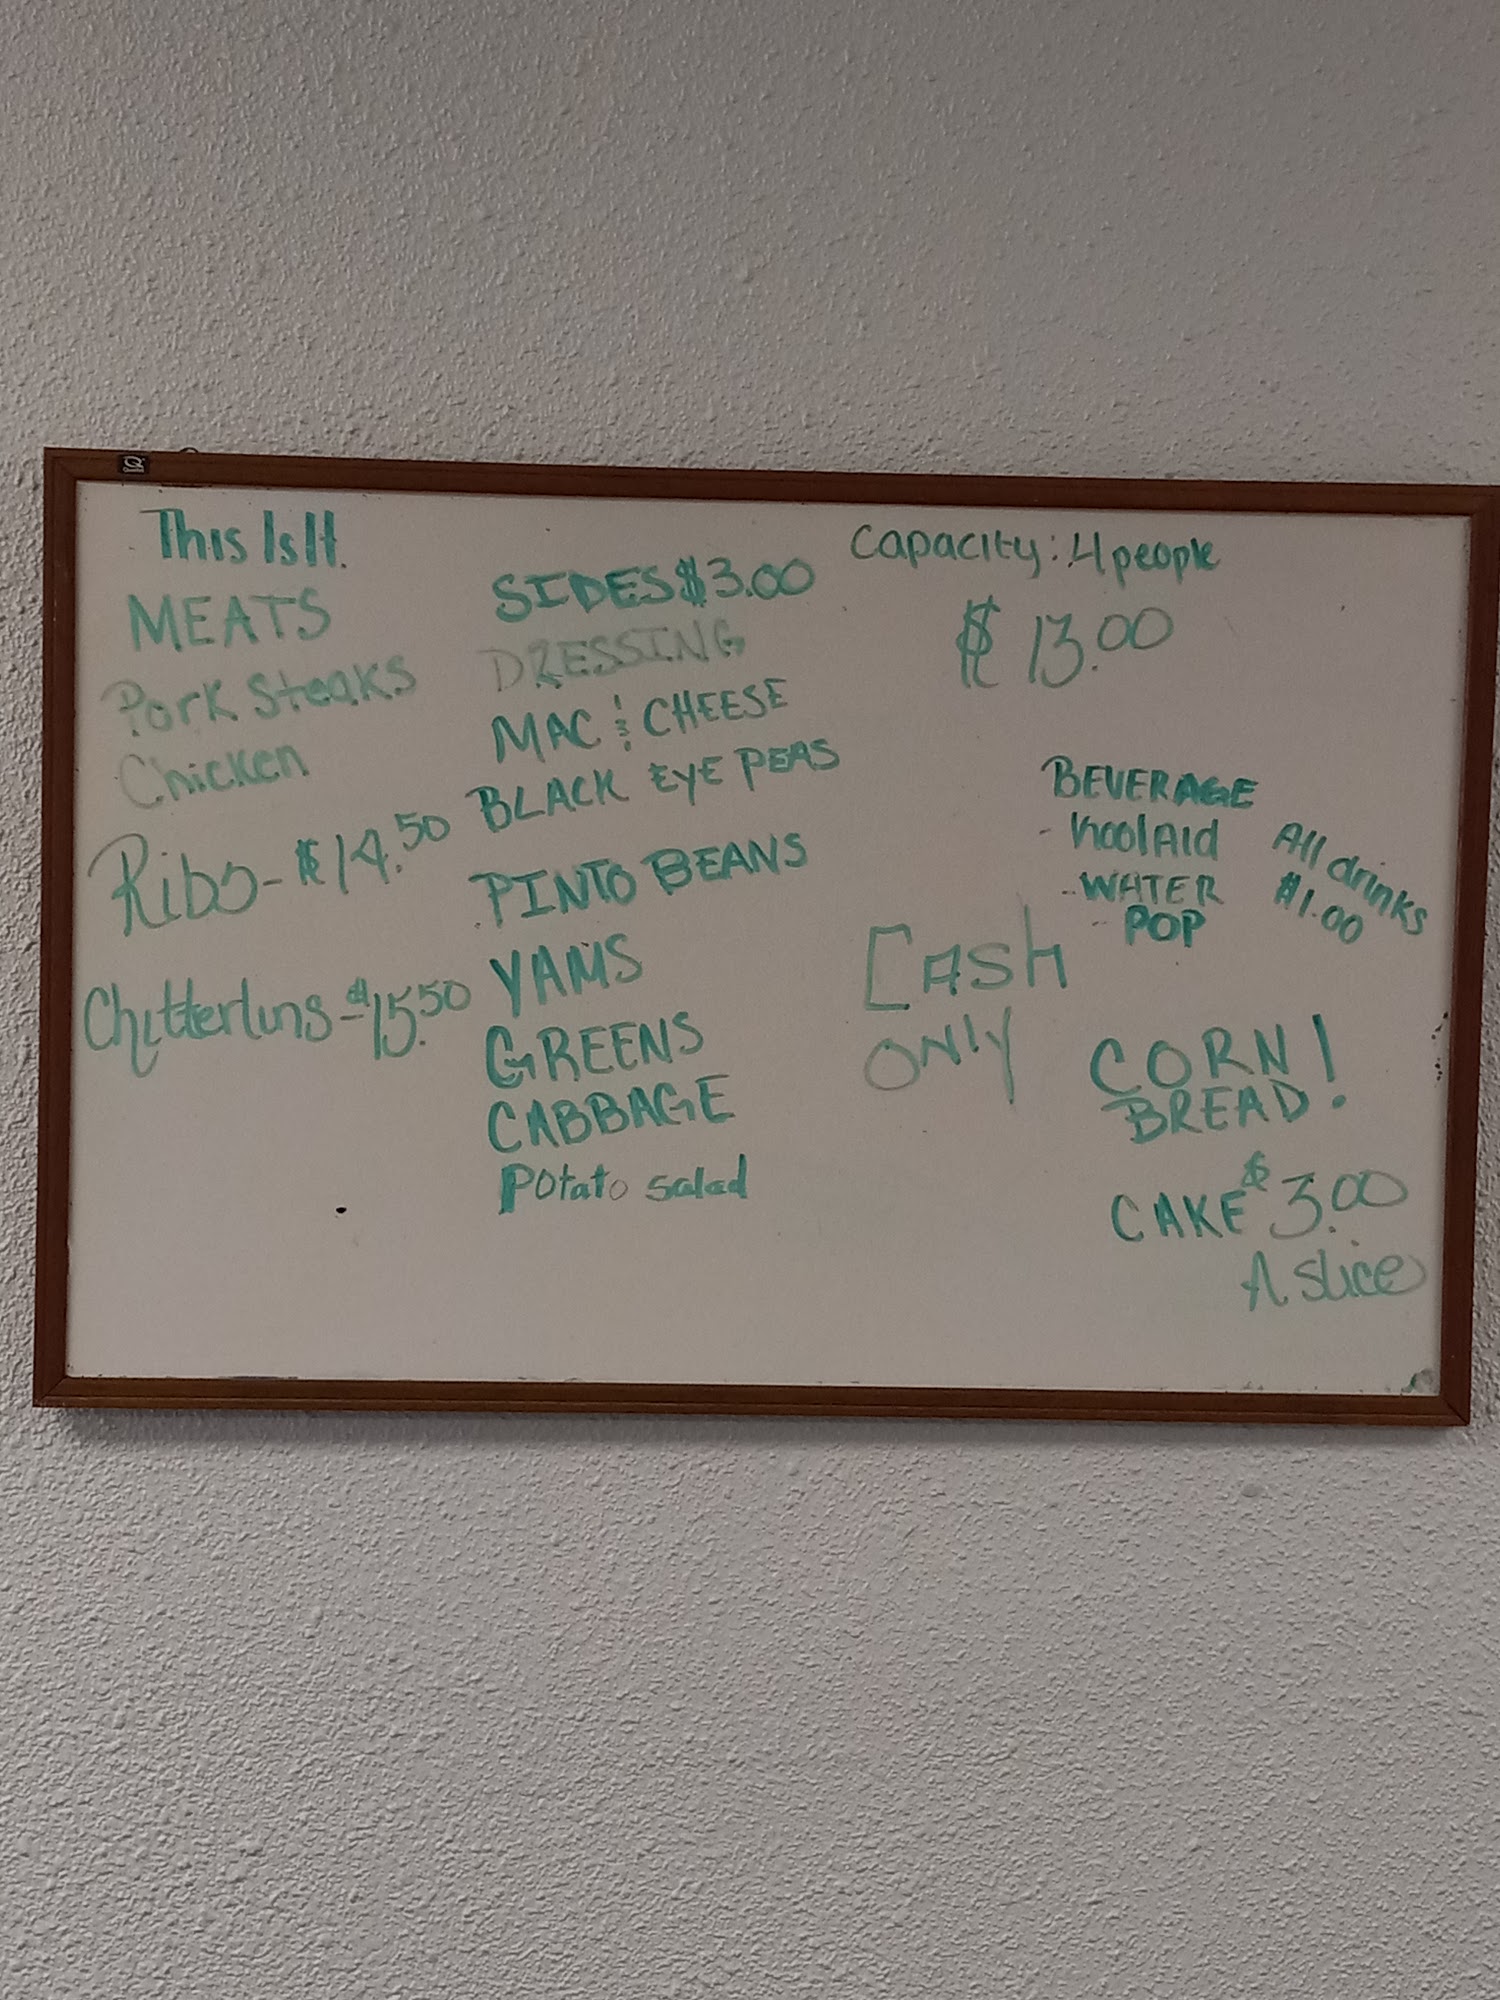 This Is It.
MEATS
Pork Steaks
Chicken
Ribs - $14.50
Chitterlins - $15.50
SIDES $3.00
DRESSING
MAC & CHEESE
BLACK EYE PEAS
PINTO BEANS
YAMS
GREENS
CABBAGE
Potato salad
Capacity: 4 people
$13.00
BEVERAGE
- KoolAid
- WATER
- POP
All drinks
$1.00
CASH
ONLY
CORN!
BREAD!
CAKE $3.00
A slice